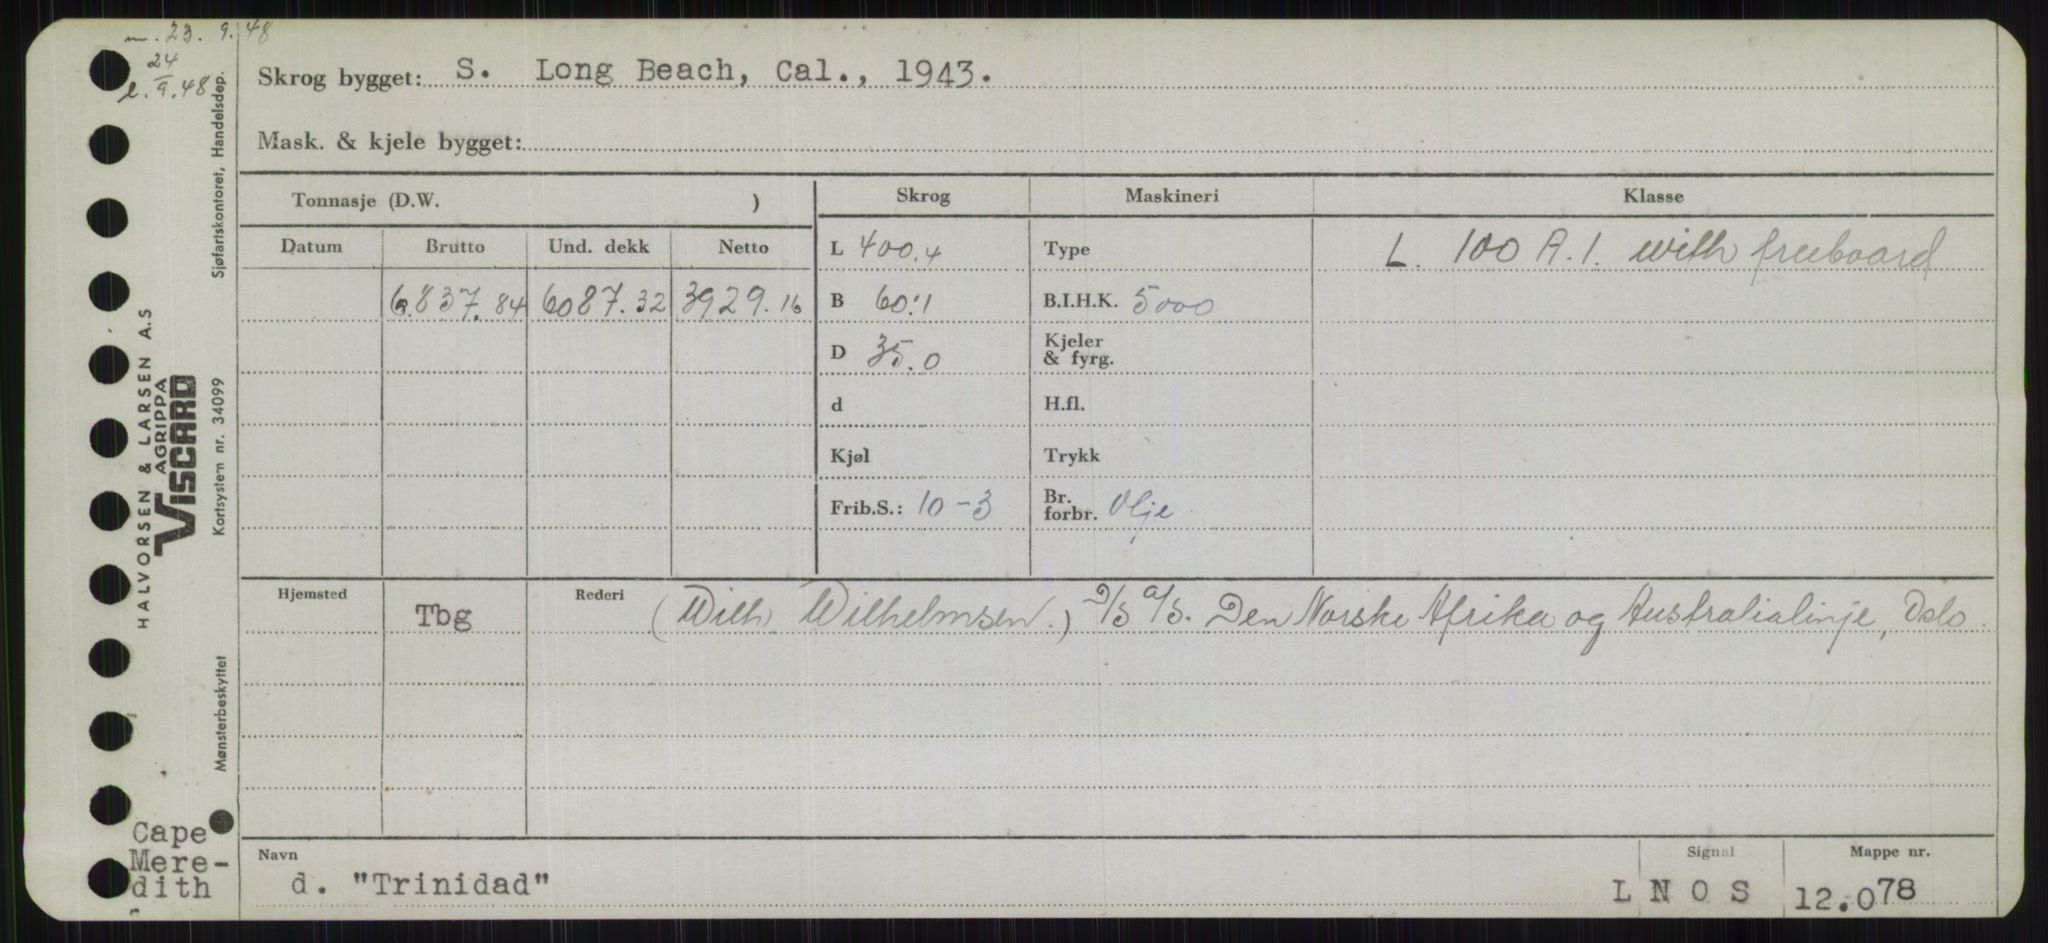 m. 23. 9. 48
24
l. 9. 48
Skrog bygget: S. Long Beach, Cal., 1943.
Mask. & kjele bygget:
Tonnasje (D.W. )
Skrog Maskineri Klasse
Datum Brutto Und. dekk Netto
L 400.4 Type L. 100 A.1. with freeboard
6.837.84 6087.32 3929.16 B 60.1 B.I.H.K. 5000
D 35.0 Kjeler & fyrg.
d H.fl.
Kjøl Trykk
Frib.S.: 10-3 Br. forbr. Olje
Hjemsted Tbg Rederi (Wilh. Wilhelmsen.) D/S A/S. Den Norske Afrika og Australialinje, Oslo.
Navn d. "Trinidad" Signal L N O S Mappe nr. 12.078
Cape
Mere-
dith
HALVORSEN & LARSEN A.S
AGRIPPA
VISCARD
Sjøfartskontoret, Handelsdep.
Kortsystem nr. 34099
Mønsterbeskyttet